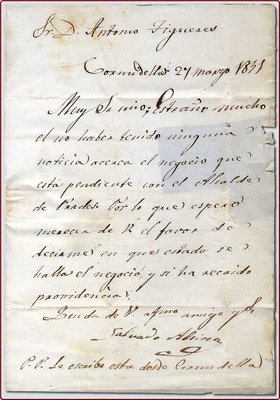 Sr. D. Antonio Figueres
Cornudella 27 marzo 1851
Muy Sr mio; Estraño mucho
el no haber tenido ninguna
noticia acerca el negocio que
esta pendiente con el Alcalde
de Prades. Por lo que espero
merecer de V. el favor de
decirme en que estado se
halla el negocio, y si ha recaido
providencia.
Queda de V. afmo amigo y S.
Salvado
P. P. Le escribo esta desde Cornudella